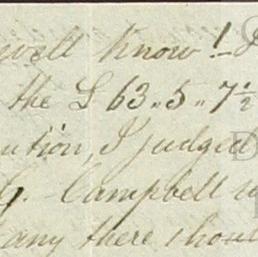 well know!
the £ 63..5..7½
ution, I judged
G. Campbell
any there shoul